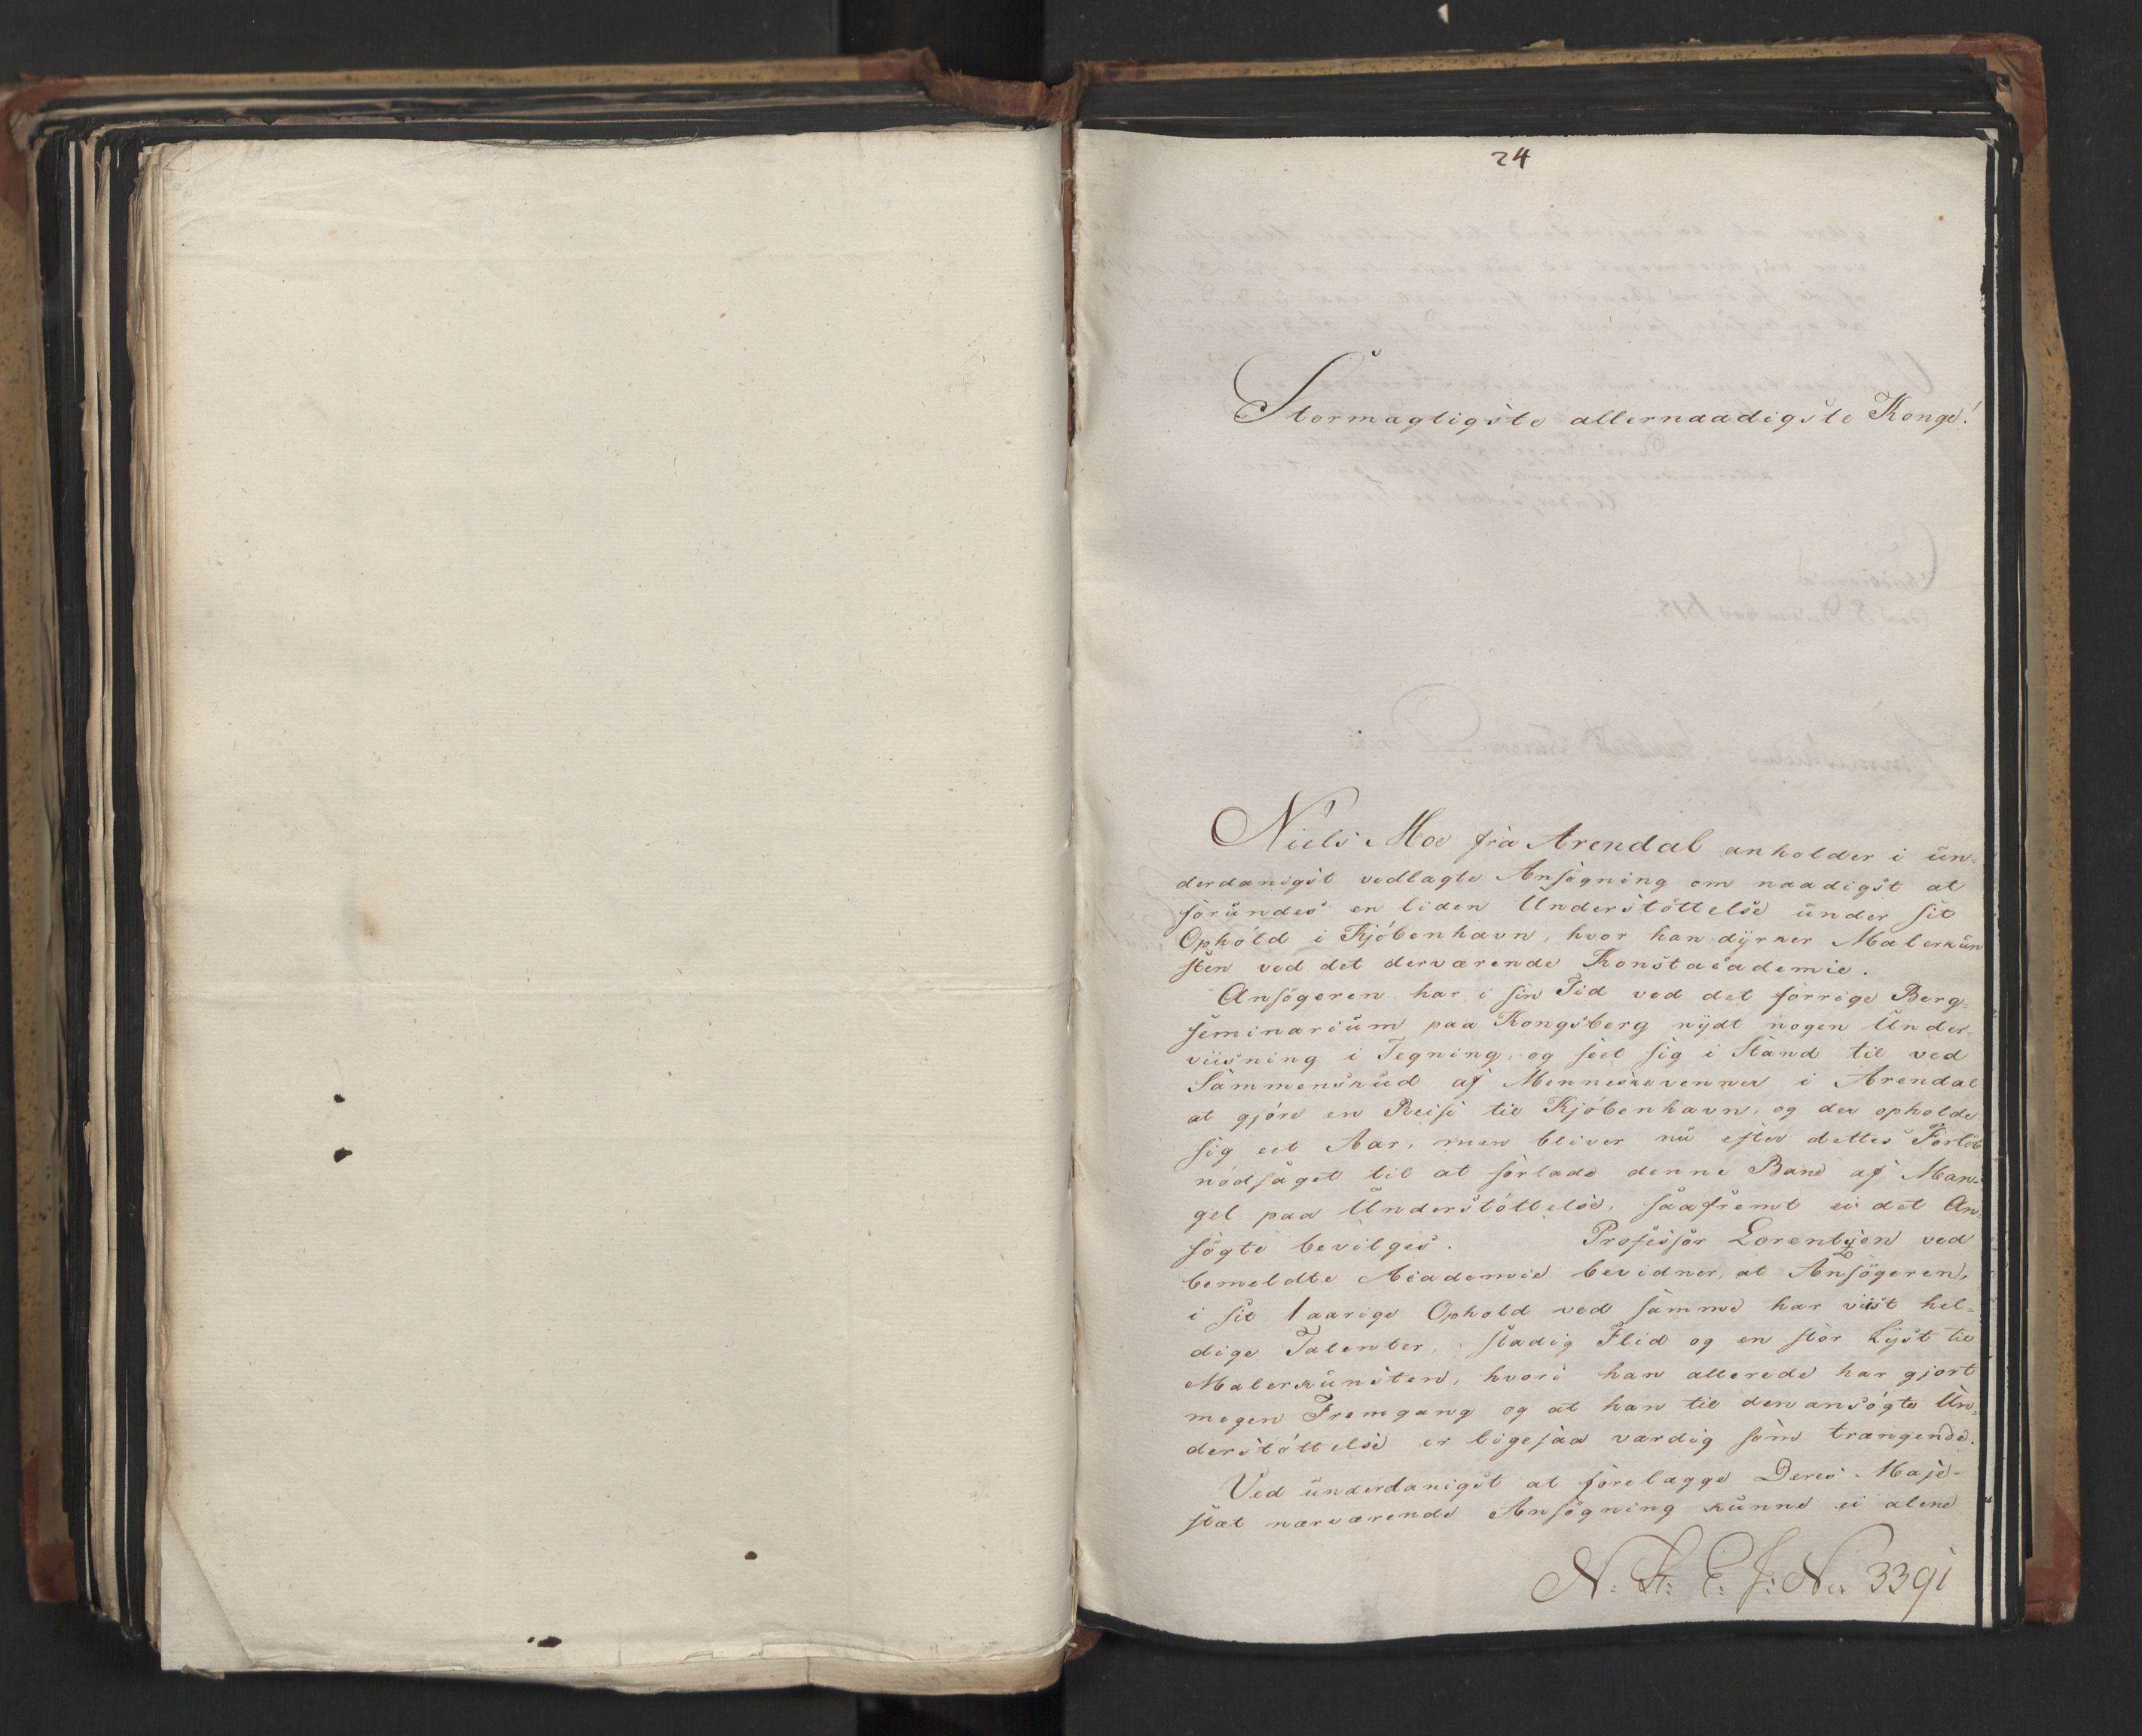 24
Stormægtigste allernaadigste Konge!
Niels Moe fra Arendal anholder i un-
derdanigst vedlagte Ansøgning om naadigst at
forundes en liden Understøttelse under sit
Ophold i Kjøbenhavn, hvor han dyrker Malerkun
sten ved det derværende Konstacademie.
Ansøgeren har i sin Tid ved det forrige Berg-
seminarium paa Kongsberg nydt nogen Under-
viisning i Tegning, og seet sig i Stand til ved
Sammenskud af Menneskevenner i Arendal
at gjøre en Reise til Kjøbenhavn, og der opholde
sig eet Aar, men bliver nu efter dettes Forløb
nødsaget til at forlade denne Bane af Man-
gel paa Understøttelse, saafremt ei det An-
søgte bevilges. Professor Lorentzen ved
bemeldte Academie bevidner, at Ansøgeren,
i sit 1 aarige Ophold ved samme har viist hel-
dige Talenter, stadig Flid og en stor Lyst til
Malerkunsten, hvori han allerede har gjort
megen Fremgang og at han til den ansøgte Un-
derstøttelse er ligesaa værdig som trængende.
Ved underdanigst at forelægge Deres Maje-
stæt nærværende Ansøgning kunne ei alene
N. St: C. J: No 3391